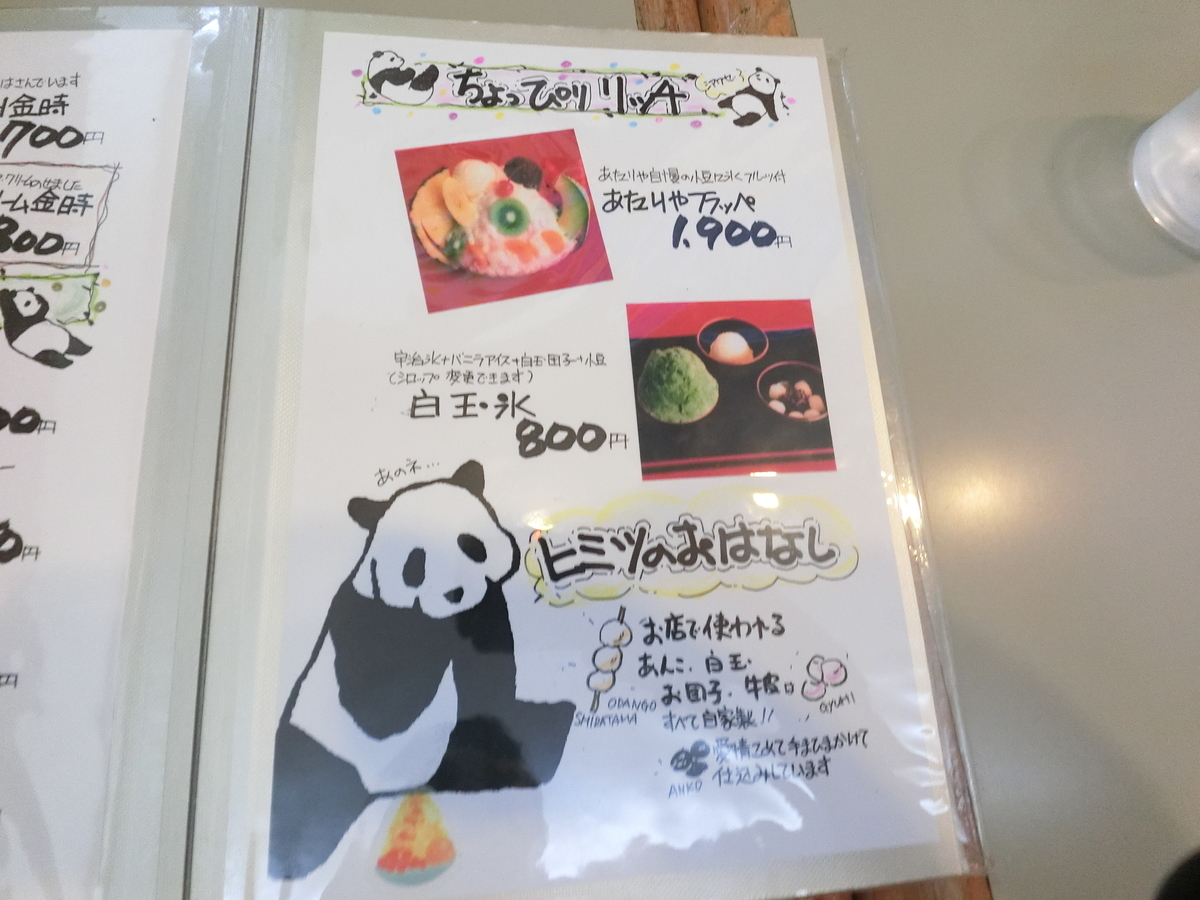 はさんでいます
金時
700円
クリームのせました
ーム金時
800円
00円
0円
円
ちょっぴりリッチ
あたりや自慢の小豆に氷くフルーツ付
あたりやフラッペ
1,900円
宇治氷+バニラアイス+白玉団子+小豆
(シロップ 変更できます)
白玉・氷
800円
あのネ…
ヒミツのおはなし
お店で使われる
あんこ、白玉、
お団子、牛皮は
すべて自家製!!
ODANGO
SHIRATAMA
GYUHI
愛情こめて手まひまかけて
仕込みしています
ANKO